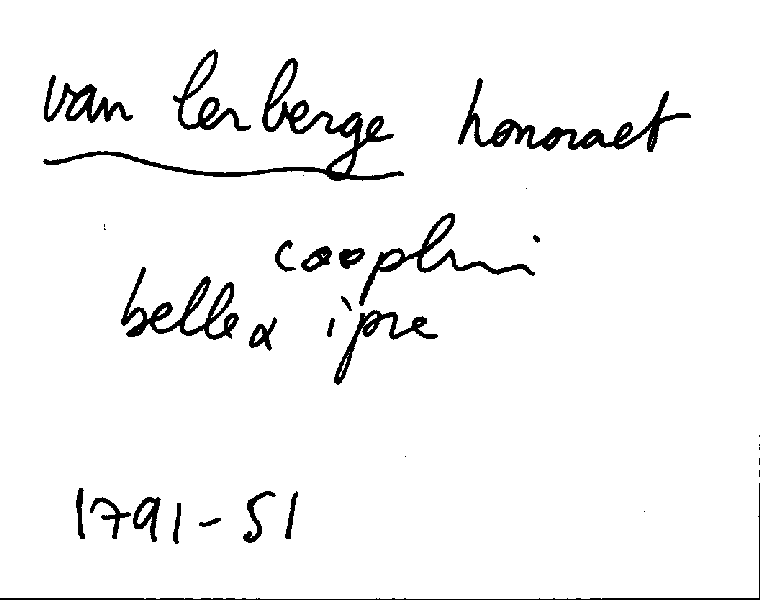 van lerberge honoraet
belle & ipre
1791-51